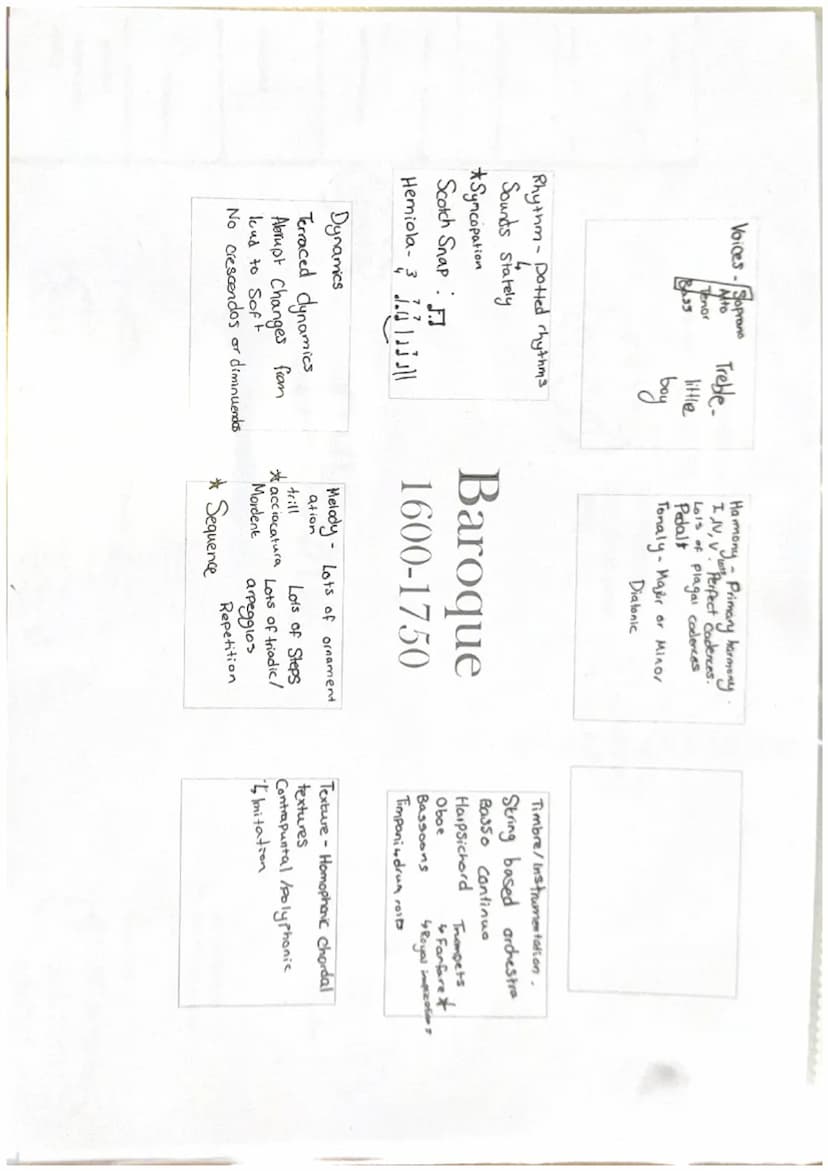 Voices - Soprano
Alto
Tenor
Bass
Treble -
little
boy
Harmony - Primary harmony.
I, IV, V. Perfect Cadences.
Lots of Plagal cadences
Pedals
Tonaly - Major or Minor
Diatonic
Rhythm - Dotted rhythms
↳
Sounds Stately
*Syncopation
Scotch Snap :
Hemiola - 3
Baroque
1600-1750
Timbre/Instrumentation.
String based orchestra
Basso continuo
Harpsichord Trumpets
Oboe ↳ Fanfare *
Bassoons ↳ Royal
Timpani ↳ drum rolls
Dynamics
Terraced dynamics
Abrupt Changes from
loud to Soft
No crescendos or diminuendos
Melody - Lots of ornament
ation
trill Lots of Steps
* acciacatura Lots of triadic/
Mordent arpeggios
Repetition
* Sequence
Texture - Homophonic Chordal
textures
Contrapuntal /Polyphonic
↳ Imitation